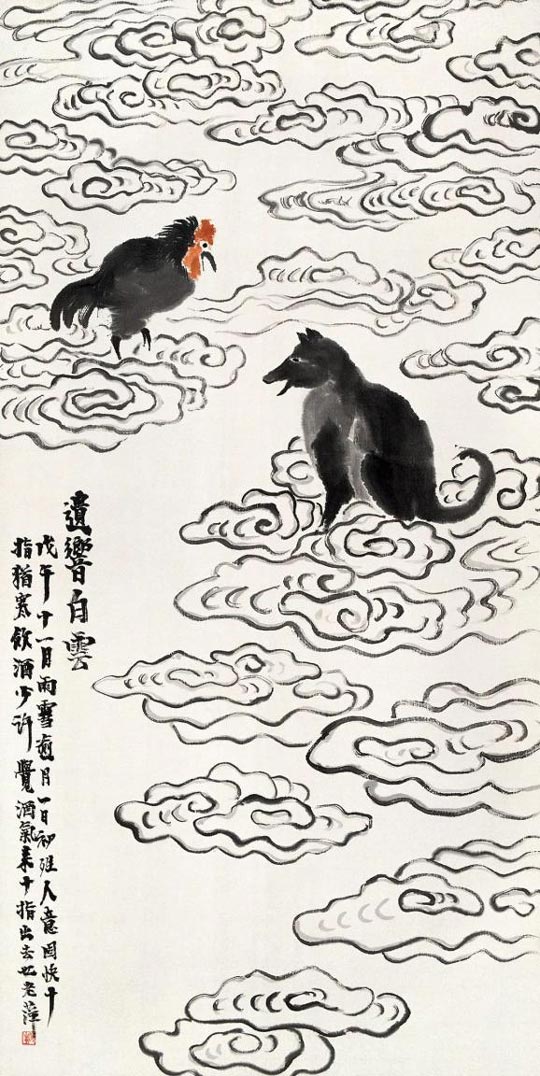 遺響白雲
戊午十一月雨雪逾月一日初人意快十
指猶寒飲酒少許覺酒氣十指出去也老萍